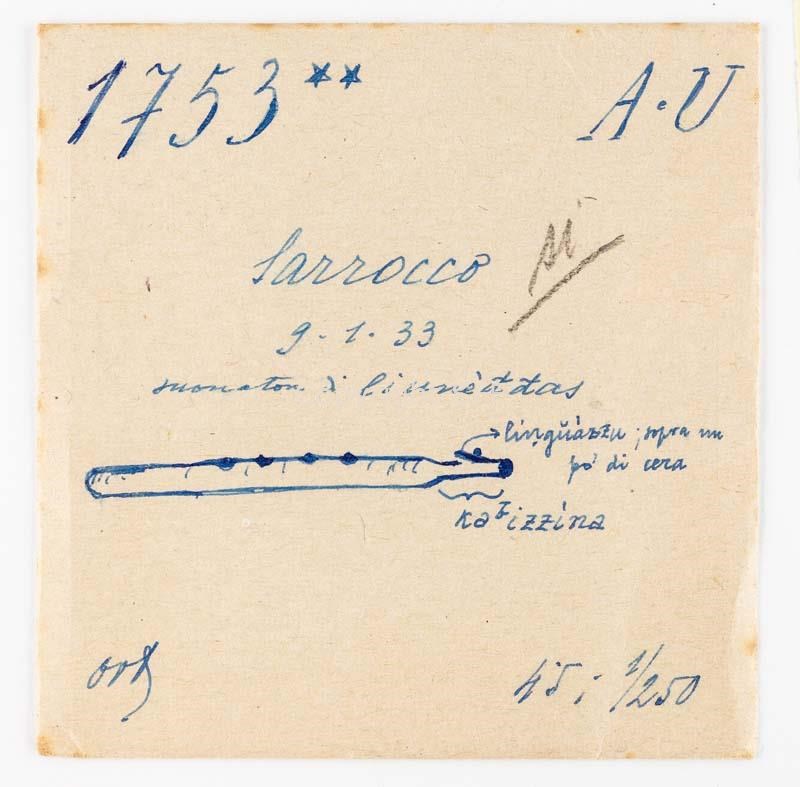 1753** A·U
Sarrocco
sì
9·1·33
suonatore di liunèđđas
lingŭázzu; sopra un
pó di cera
kaƀizzína
45; 1/250